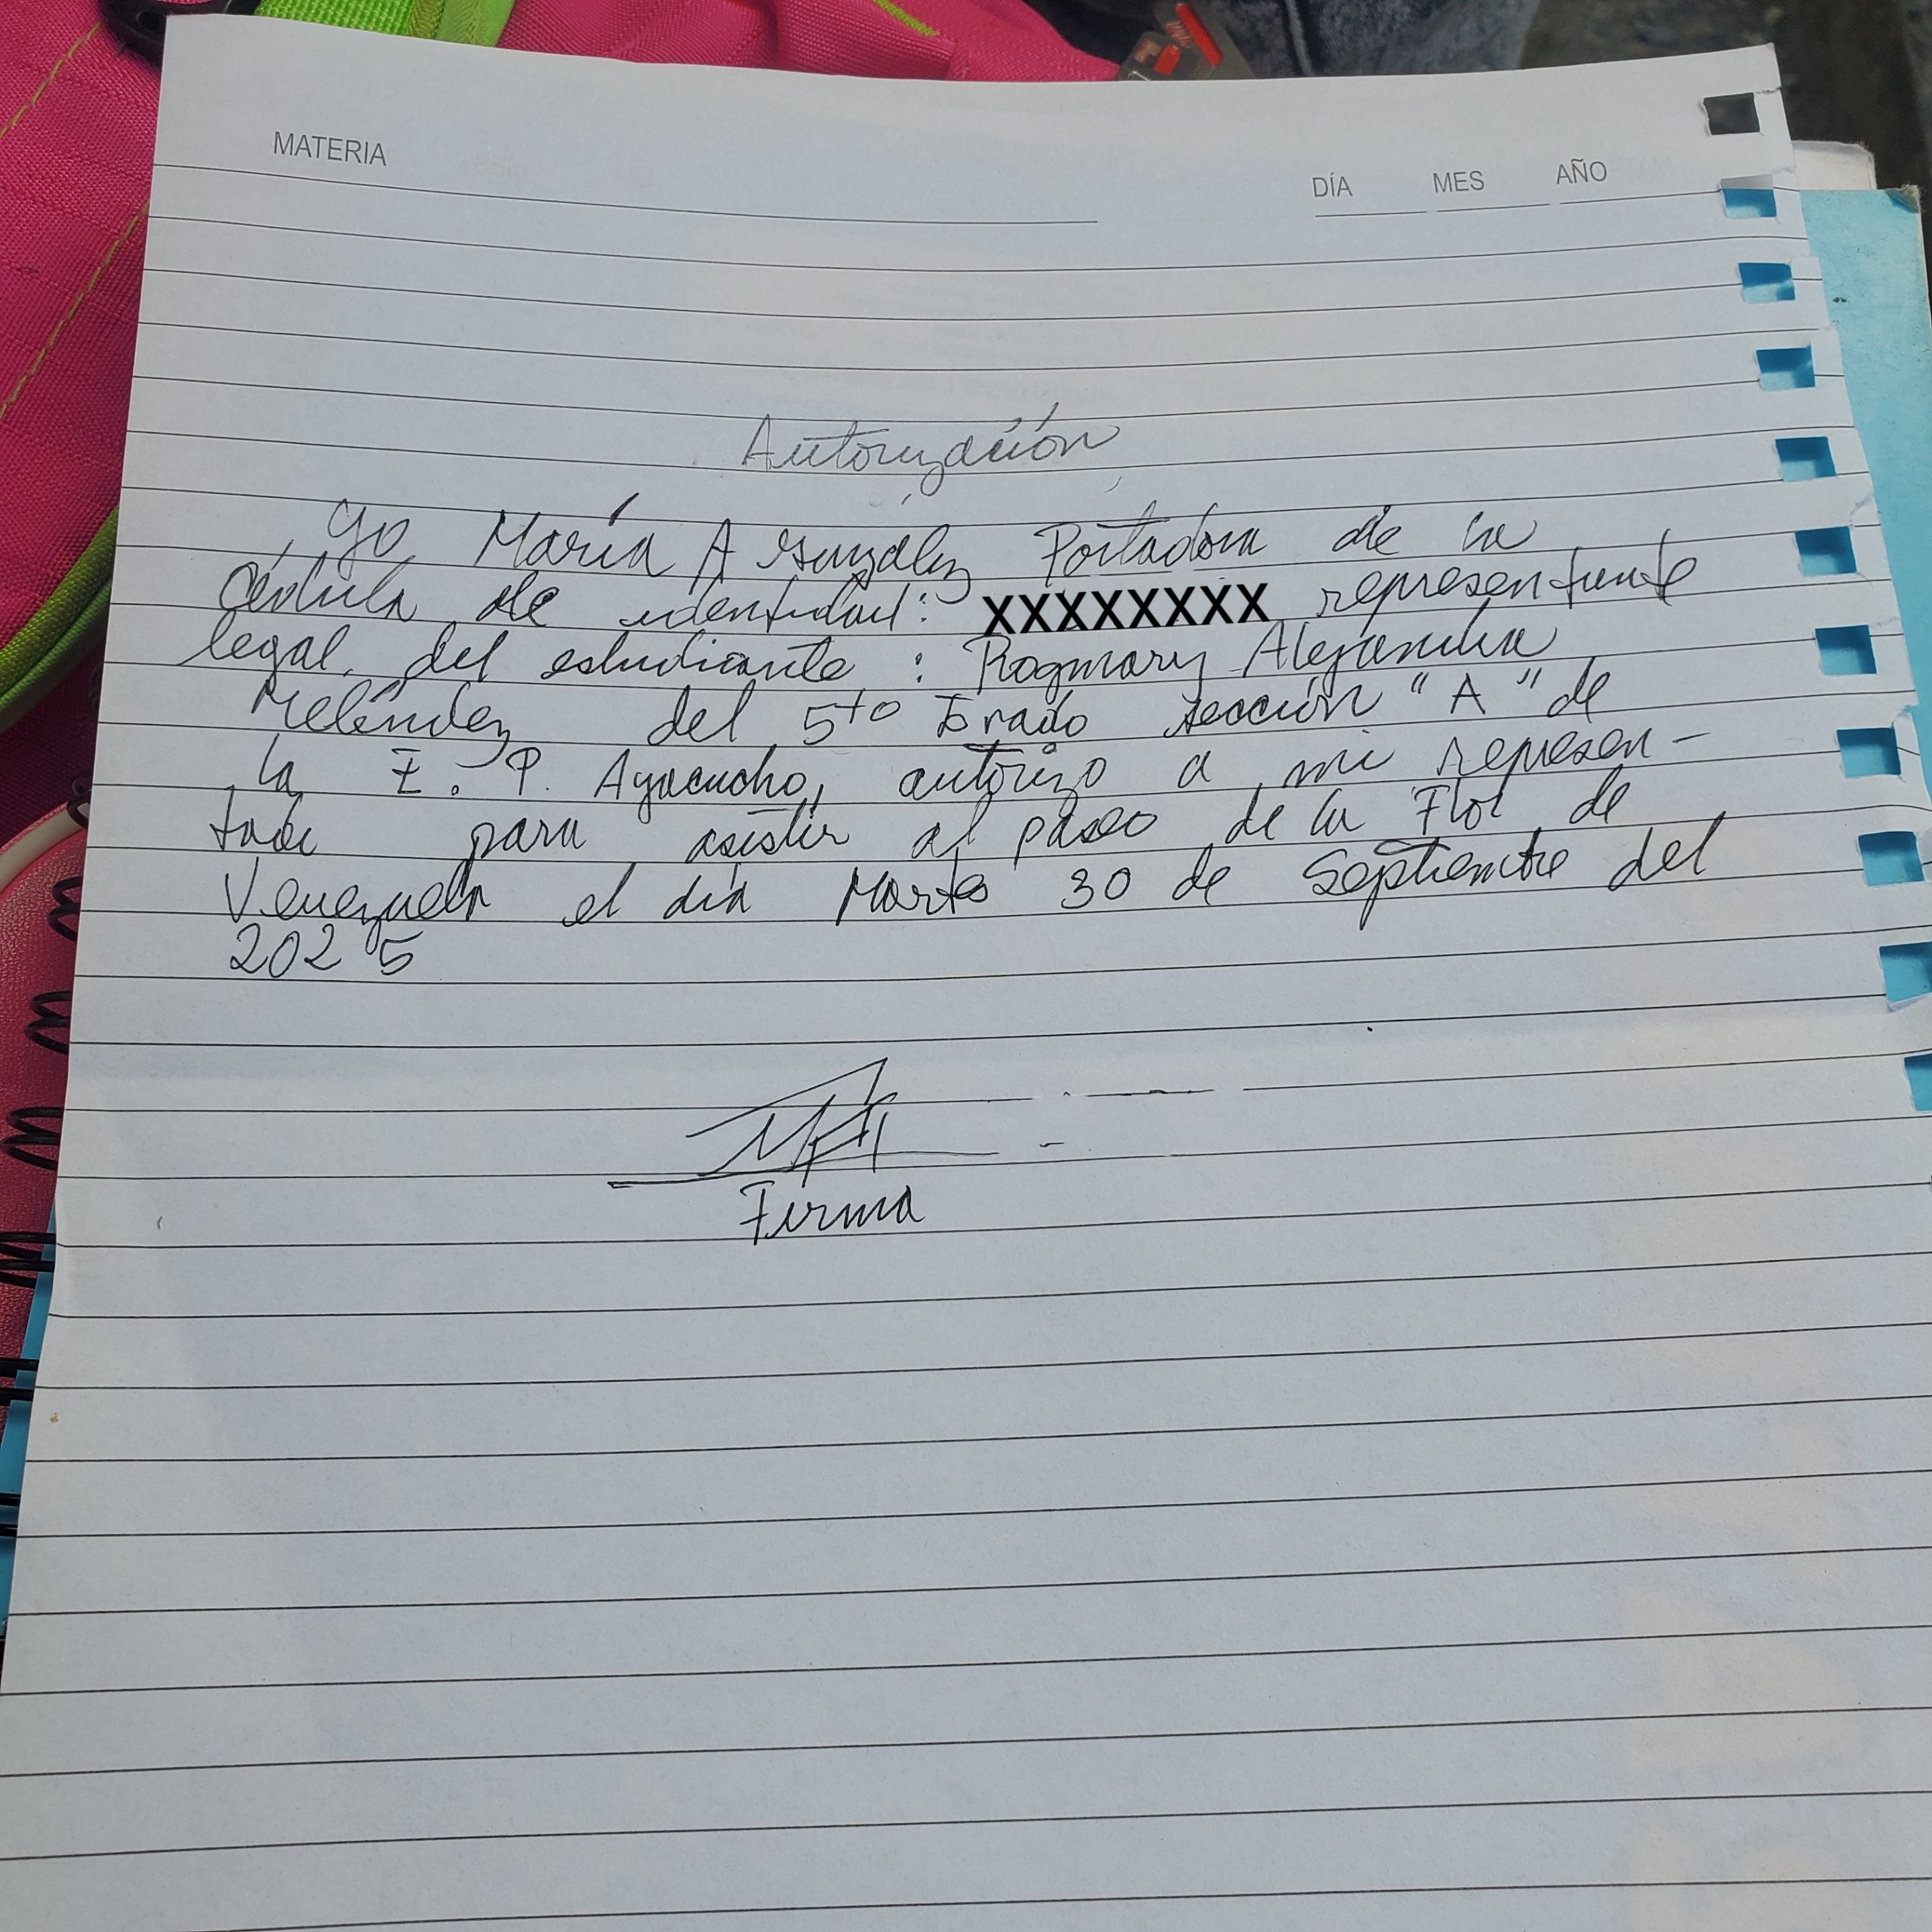 MATERIA
DÍA MES AÑO
Autorización
Yo María A González Portadora de la
Cédula de identidad: XXXXXXXX representante
legal del estudiante : Rogmary Alejandra
Meléndez del 5to Grado sección "A" de
la E. P. Ayacucho, autorizo a mi represen-
tada para asistir al paseo de la Flor de
Venezuela el día Martes 30 de Septiembre del
2025
Firma